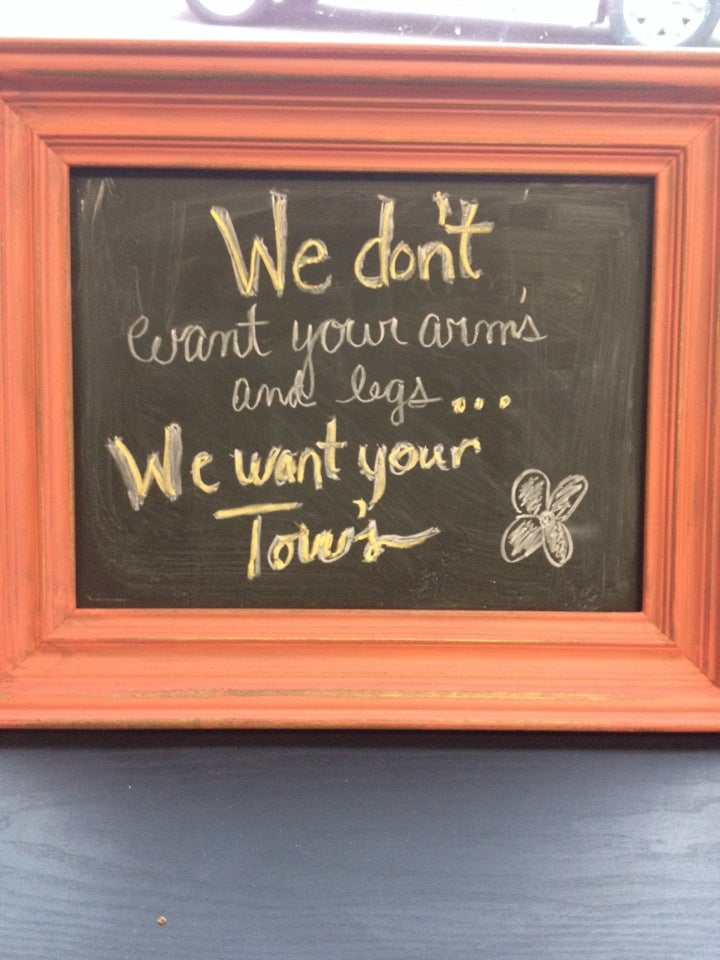 We don't
want your arm's
and legs...
We want your
Tow's